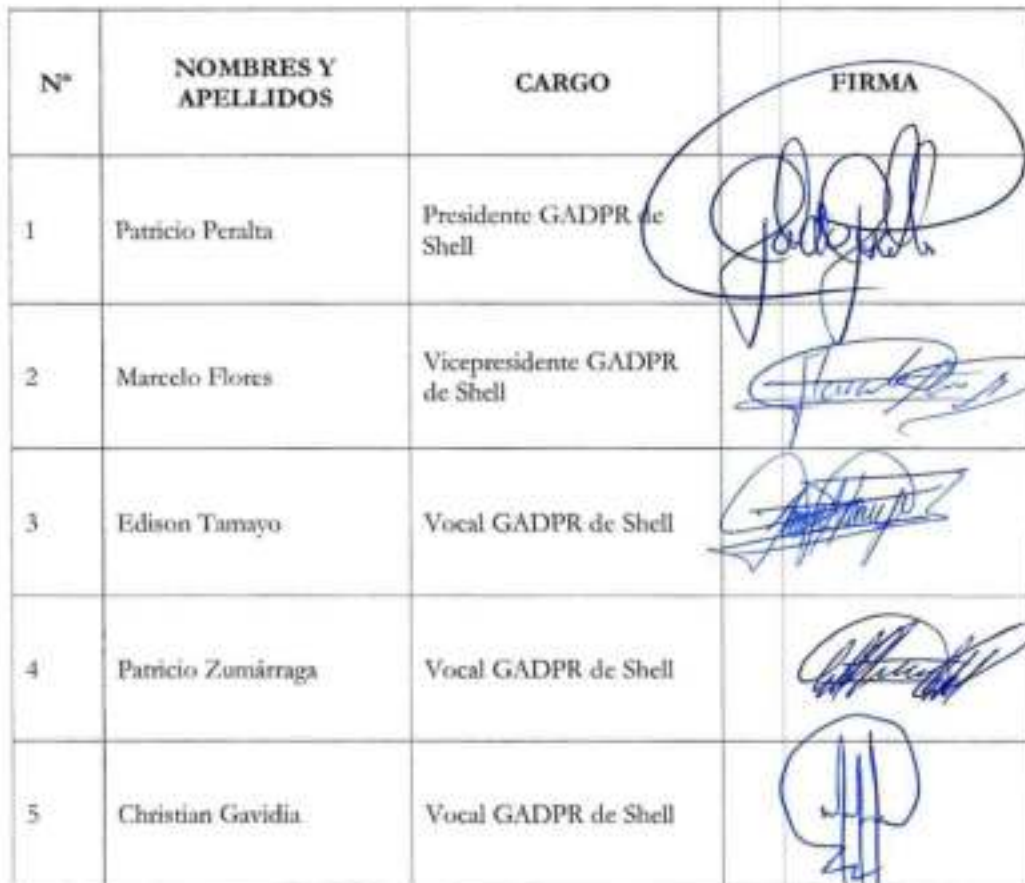 Nº NOMBRES Y APELLIDOS CARGO FIRMA
1 Patricio Peralta Presidente GADPR de Shell
2 Marcelo Flores Vicepresidente GADPR de Shell
3 Edison Tamayo Vocal GADPR de Shell
4 Patricio Zumárraga Vocal GADPR de Shell
5 Christian Gavidia Vocal GADPR de Shell